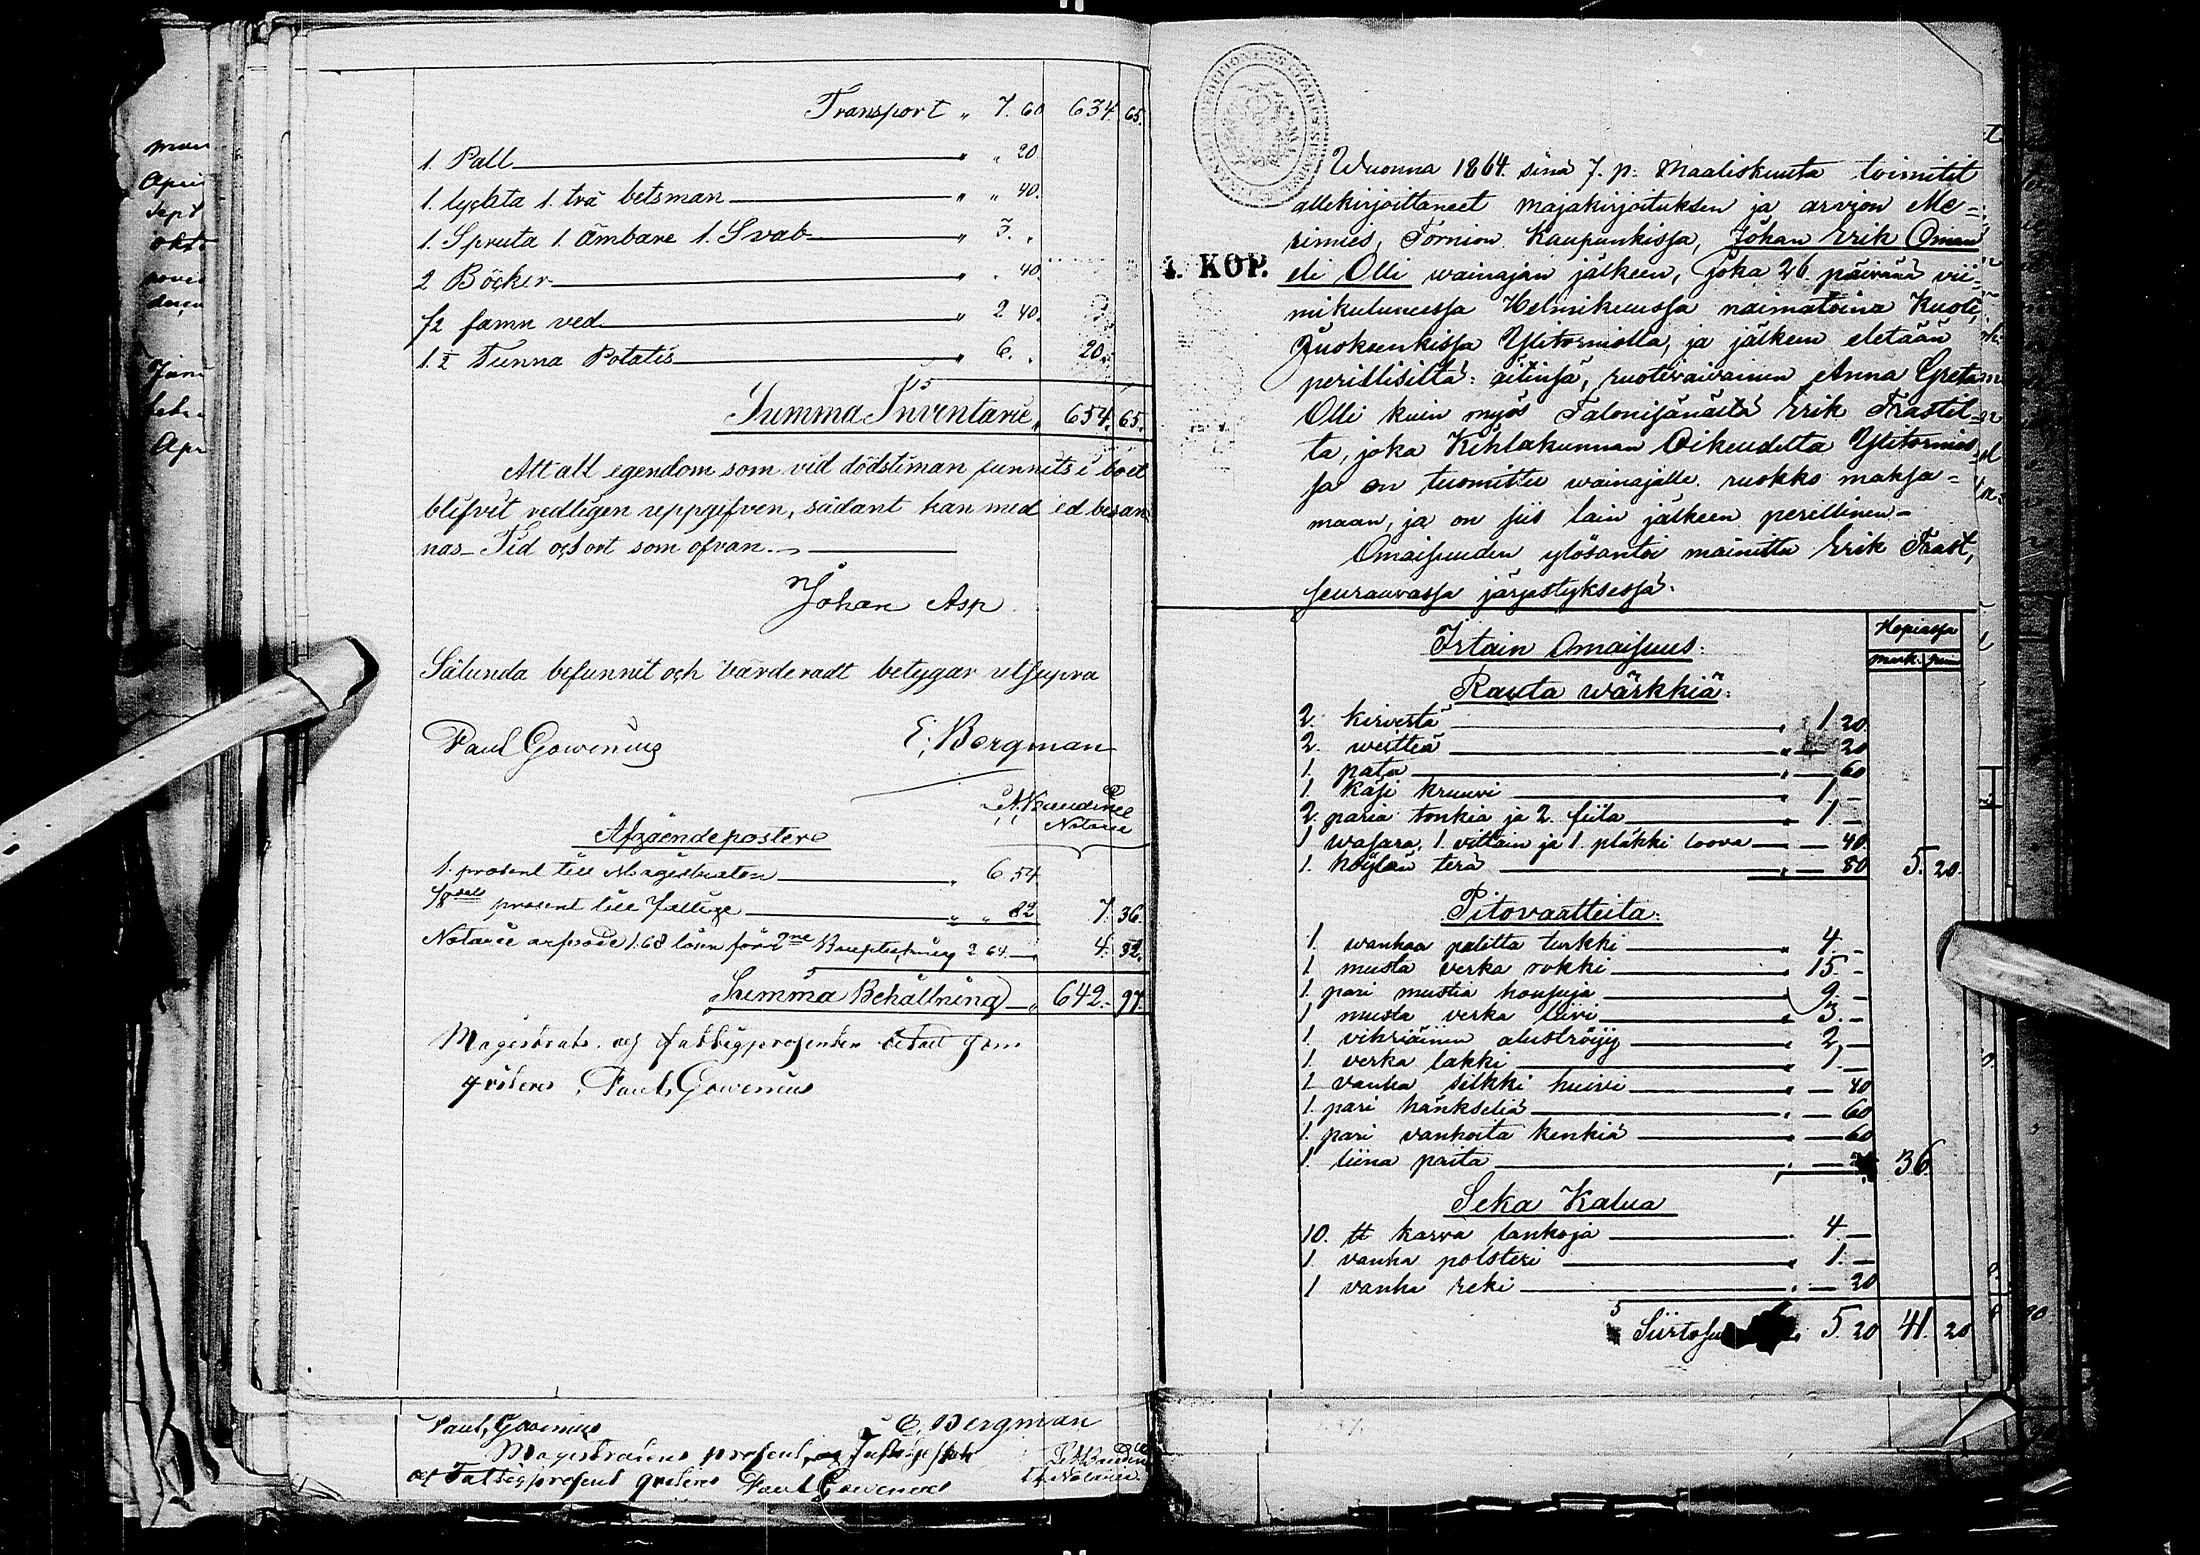 Transport " 7. 60 634. 65.
1. Pall " " 20
1. lyckta 1. trä betsman " " 40.
1. Spruta 1. Ämbare 1. Svab " 3. "
2 Böcker " " 40
1/2 famn ved " 2 40.
1. Tunna Potatis " 6. " 20.
Summa Inventarie " 654. 65.
Att all egendom som vid dödstiman funnits i boet
blifvit redligen uppgifven, sådant kan med ed besan
nas Tid och ort som ofvan.
Johan Asp
Sålunda befunnit och Värderadt betygar utsupra
Paul Gowenius E. Bergman
Notarie
Afgående poster
1. prosent till Magistraten " 6 54
1/8 prosent till fattige " " 82 7. 36
Notarie 1.68 lösen för 2. 64. 4. 32.
Summa Behållning " 642. 97.
Magistrats och fattigprosenten
qvitteras Paul Gowenius
Paul Gowenius E. Bergman
Magistratens prosent
och Fattigprosent qvitteras Paul Gowenius
4. KOP.
Wuonna 1864. sinä 7. p. Maaliskuuta toimitit
allekirjoittaneet majakirjoituksen ja arvion Me=
rimies, Tornion Kaupunkissa, Johan Erik Oman
eli Olli wainajan jälkeen, joka 26 päivänä vii=
mikuluneessa Helmikuussa naimatoina Kuoli,
Juoksenkissa Ylitorniolla, ja jälkeen eletään
perillisiltä: äitinsä, ruotivaivainen Anna Greta
Olli kuin myös Talonisänältä Erik Frastil=
ta, joka Kihlakunnan Oikeudelta Ylitornios=
sa on tuomittu wainajalle ruokko maksa=
maan, ja on siis lain jälkeen perillinen -
Omaisuuden ylösantoi mainittu Erik Frast,
seuraavassa järjestyksessä.
Hopiassa
Irtain Omaisuus:
mark. pen
Rauta wärkkiä:
2. kirvestä " 1 20.
2. weittiä " — 20
1. pata " — 60
1. Käsi kruuvi " 1. —
2. paria tonkia ja 2. fiila " 1. —
1 wasara, 1. vittain ja 1. pläkki toova — 40.
1. höylän terä " — 80 5. 20.
Pitovaatteita:
1. wanhaa palitta turkki " 4. —
1 musta verka rokki " 15. —
1. pari mustia housuja " 9. —
1 musta verka liivi " 3. —
1. vihriäinen alusströijy " 2. —
1. verka lakki " 1. —
1. vanha silkki huivi " — 40
1. pari hänkseliä " — 60
1. pari vanhoita kenkiä " — 60
1. liina paita " — 36
Seka Kalua
10. ℔ karva lankoja " 4. —
1. vanha polsteri " 1. —
1 vanha reki " — 20
5. 20 41. 20